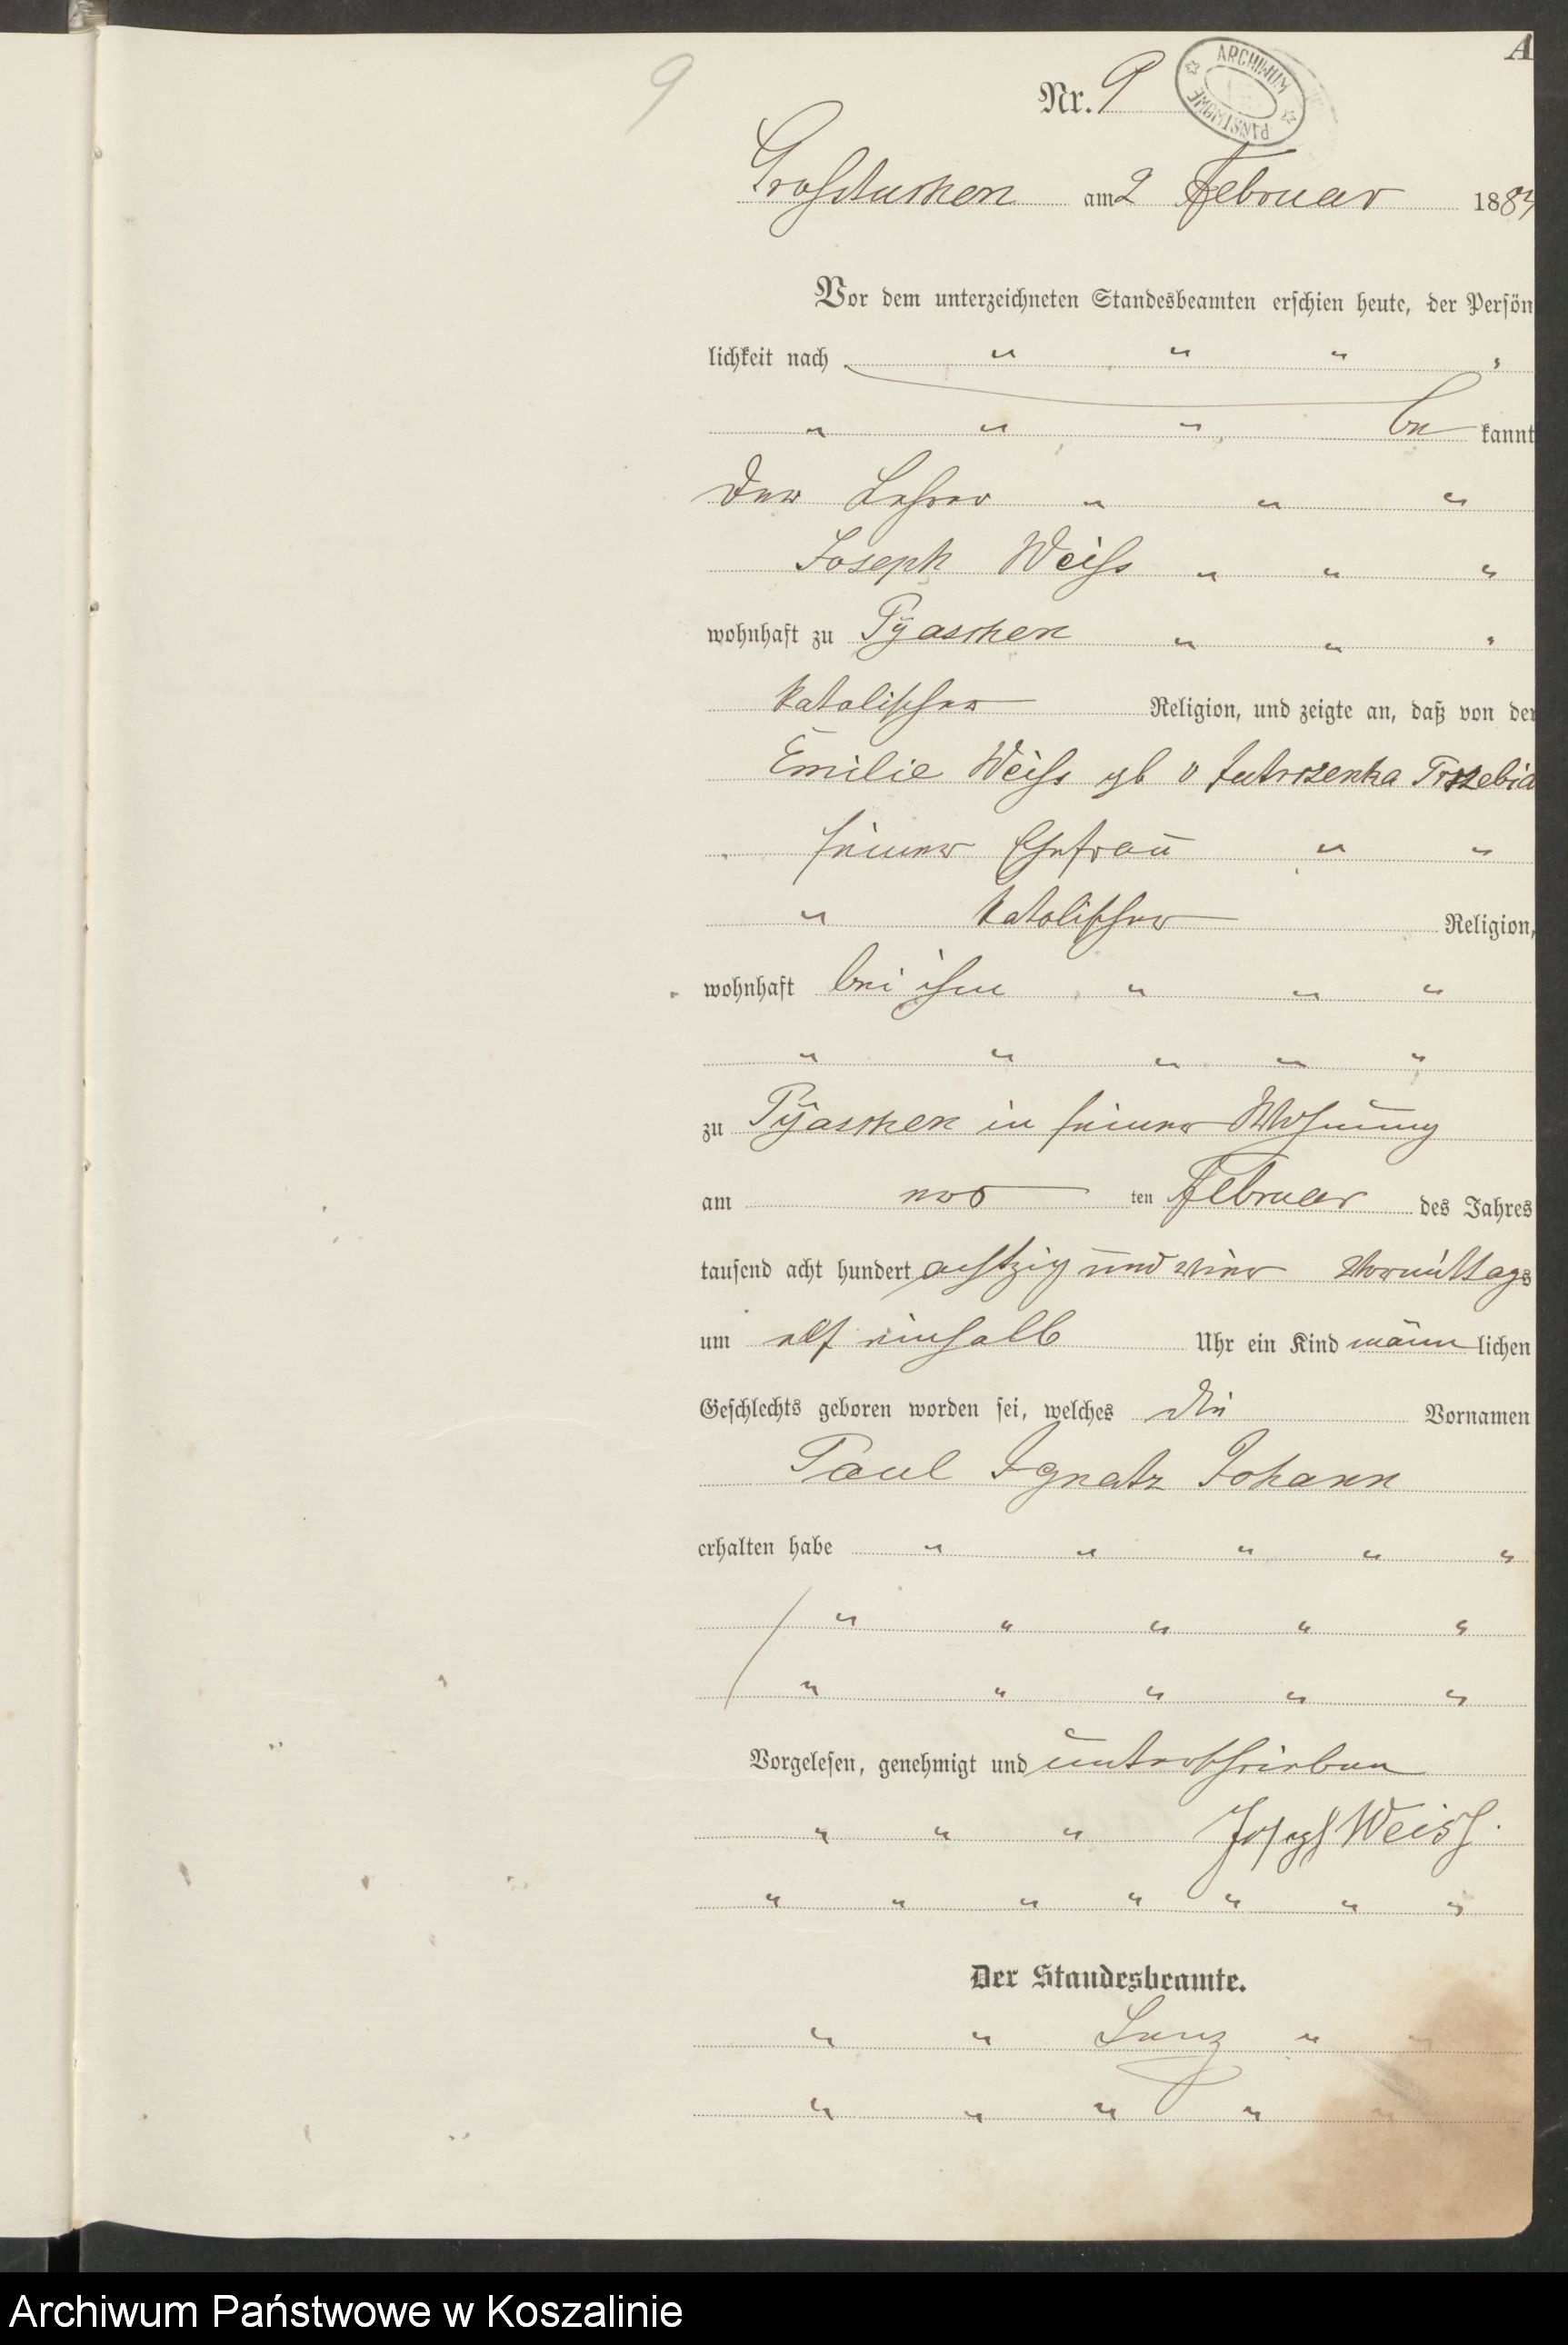 A
9
Nr. 9
ARCHIWUM PAŃSTWOWE
Grosstuchen am 2 Februar 1884
Vor dem unterzeichneten Standesbeamten erschien heute, der Persön
lichkeit nach " " " "
" " " be kannt
der Lehrer " " "
Joseph Weiss " " "
wohnhaft zu Pyaschen " " "
katolischer Religion, und zeigte an, daß von der
Emilie Weiss gb v Jutrzenka Trzebia
seiner Ehefrau " "
" katolischer Religion,
wohnhaft bei ihm " " "
" " " " "
zu Pyaschen in seiner Wohnung
am ten Februar des Jahres
tausend acht hundert achtzig und vier Vormittags
um elf einhalb Uhr ein Kind männ lichen
Geschlechts geboren worden sei, welches die Vornamen
Paul Ignatz Johann
erhalten habe " " " " "
" " " " "
" " " " "
Vorgelesen, genehmigt und unterschrieben
" " " Joseph Weiss.
" " " " " " "
Der Standesbeamte.
" " " "
" " " " "
Archiwum Państwowe w Koszalinie